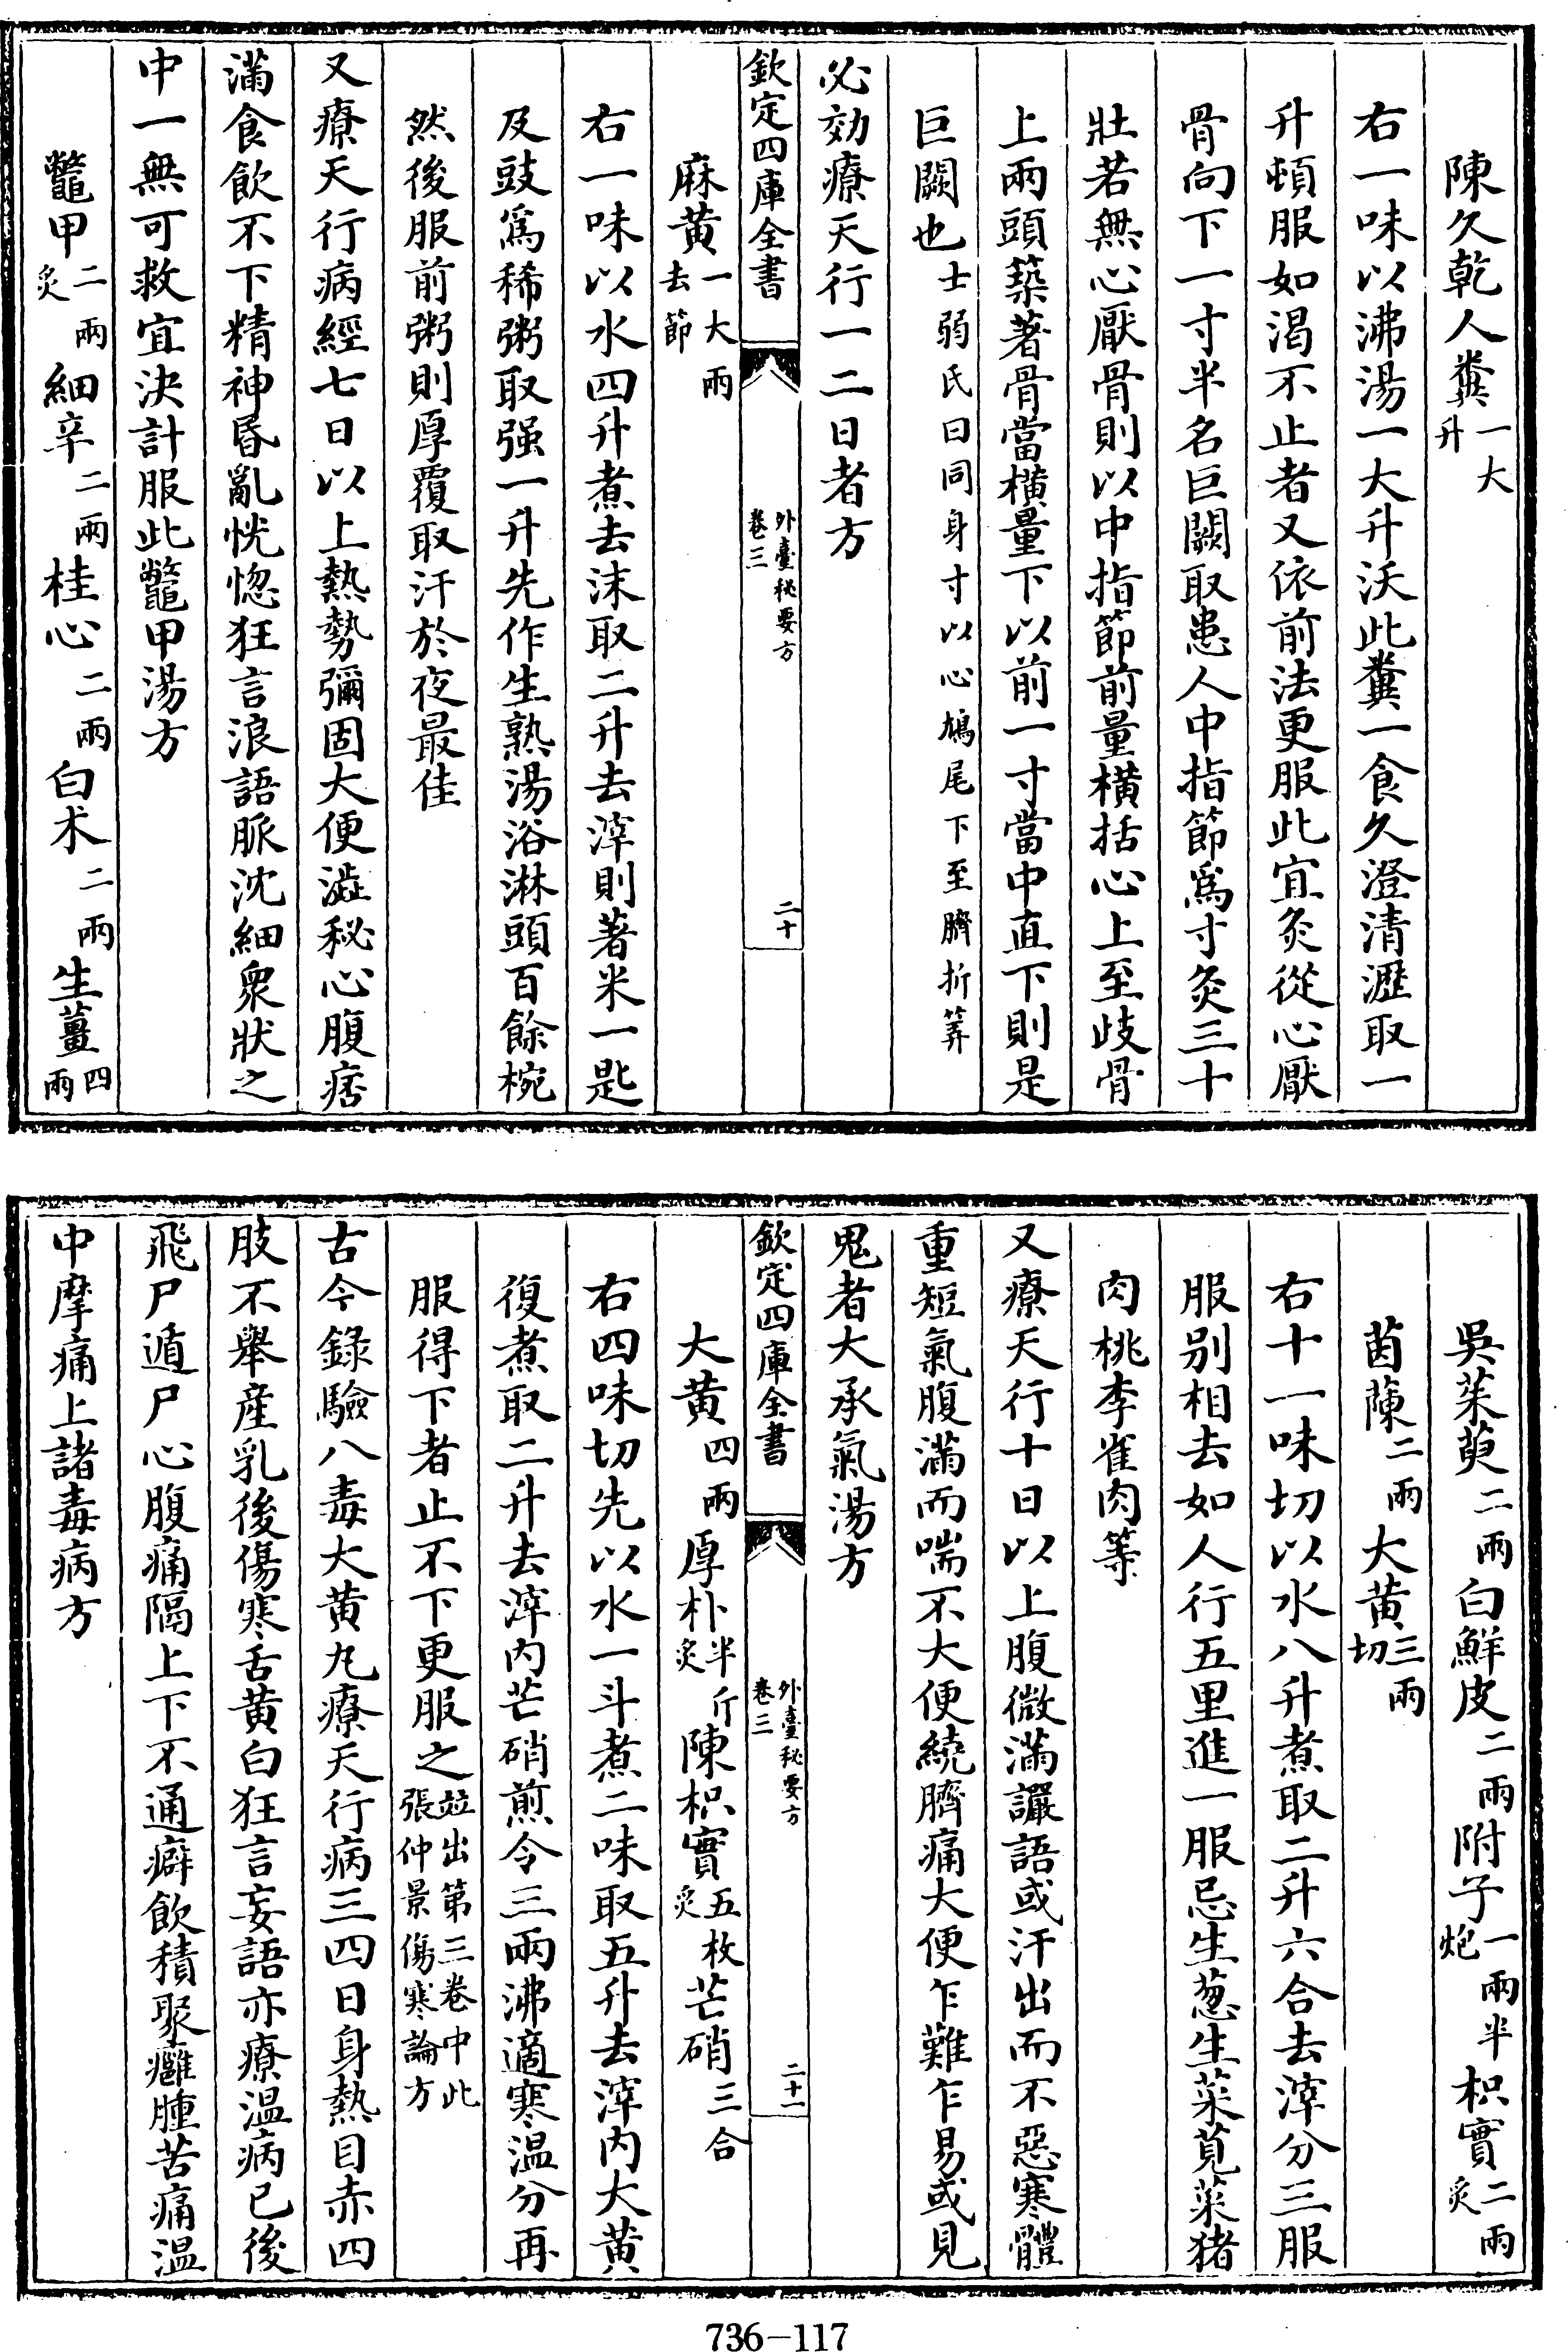 陳久乾人糞一大升
右一味以沸湯一大升沃此糞一食久澄清瀝取一
升頓服如渴不止者又依前法更服此宜灸從心厭
骨向下一寸半名巨闕取患人中指節爲寸灸三十
壯若無心厭骨則以中指節前量橫括心上至歧骨
上兩頭築著骨當橫量下以前一寸當中直下則是
巨闕也士弱氏曰同身寸以心鳩尾下至臍折筭
必効療天行一二日者方
欽定四庫全書 外臺秘要方卷三 二十
麻黄一大兩去節
右一味以水四升煮去沫取二升去滓則著米一匙
及豉爲稀粥取强一升先作生熟湯浴淋頭百餘椀
然後服前粥則厚覆取汗於夜最佳
又療天行病經七日以上熱勢彌固大便澁秘心腹痞
滿食飲不下精神昏亂恍惚狂言浪語脈沈細衆狀之
中一無可救宜決計服此鼈甲湯方
鼈甲二兩炙 細辛二兩 桂心二兩 白术二兩 生薑四兩
吳茱萸二兩 白鮮皮二兩 附子一兩半炮 枳實二兩炙
茵蔯二兩 大黄三兩切
右十一味切以水八升煮取二升六合去滓分三服
服别相去如人行五里進一服忌生葱生菜莧菜猪
肉桃李雀肉等
又療天行十日以上腹微滿讝語或汗出而不惡寒體
重短氣腹滿而喘不大便繞臍痛大便乍難乍易或見
鬼者大承氣湯方
欽定四庫全書 外臺秘要方卷三 二十一
大黄四兩 厚朴半斤炙 陳枳實五枚炙 芒硝三合
右四味切先以水一斗煮二味取五升去滓内大黄
復煮取二升去滓内芒硝煎令三兩沸適寒温分再
服得下者止不下更服之竝出第三卷中此張仲景傷寒論方
古今錄驗八毒大黄丸療天行病三四日身熱目赤四
肢不舉産乳後傷寒舌黄白狂言妄語亦療温病已後
飛尸遁尸心腹痛隔上下不通癖飲積聚癰腫苦痛温
中摩痛上諸毒病方
736—117